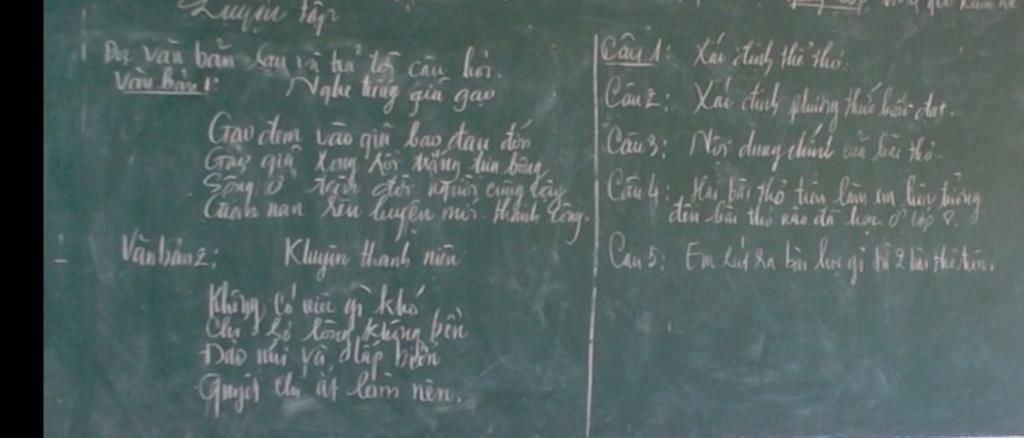 Luyện tập
Đọc văn bản sau và trả lời câu hỏi.
Văn bản 1: Nghe tiếng giã gạo
Gạo đem vào giã bao đau đớn
Gạo giã xong rồi trắng tựa bông
Sống ở trên đời người cũng vậy
Gian nan rèn luyện mới thành công.
Văn bản 2: Khuyên thanh niên
Không có việc gì khó
Chỉ sợ lòng không bền
Đào núi và lấp biển
Quyết chí ắt làm nên.
Câu 1: Xác định thể thơ.
Câu 2: Xác định phương thức biểu đạt.
Câu 3: Nội dung chính của bài thơ.
Câu 4: Hai bài thơ trên làm em liên tưởng
đến bài thơ nào đã học ở lớp 8.
Câu 5: Em rút ra bài học gì từ 2 bài thơ trên.